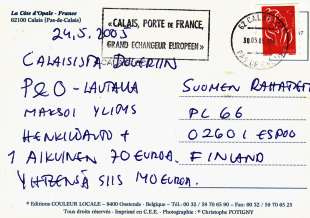 La Côte d'Opale - France
62100 Calais (Pas-de-Calais)
24.5.2005
«CALAIS, PORTE DE FRANCE,
GRAND ECHANGEUR EUROPÉEN»
CALAISISTA DOVERIIN
P&O-LAUTALLA
MAKSOI YLIMS
HENKILÖAUTO +
1 AIKUINEN 70 EUROA.
YHTEENSÄ SIIS 140 EUROA.
SUOMEN RAHATIET
PL 66
02601 ESPOO
FINLAND
® Editions COULEUR LOCALE - 8400 Oostende - Belgique - Tél.: 00 32 / 59 70 65 90 - Fax: 00 32 / 59 70 65 25
Tous droits réservés - Imprimé en C.E.E. - Photographie: ® Christophe POTIGNY